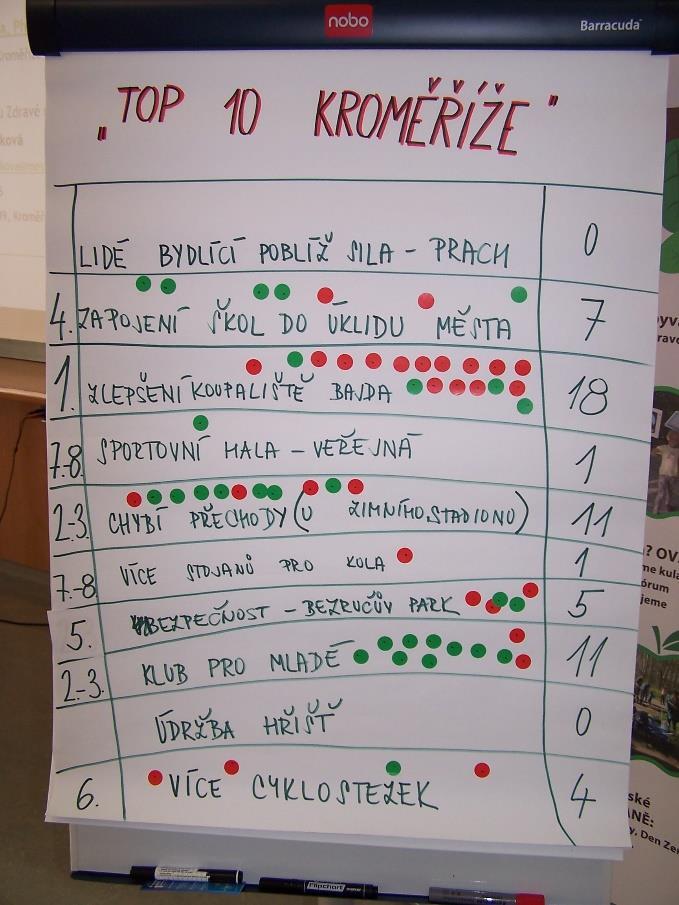 nobo
Barracuda
„TOP 10 KROMĚŘÍŽE"
LIDÉ BYDLÍCÍ POBLÍŽ SILA - PRACH 0
4. ZAPOJENÍ ŠKOL DO ÚKLIDU MĚSTA 7
1. ZLEPŠENÍ KOUPALIŠTĚ BAJDA 18
7.-8. SPORTOVNÍ HALA - VEŘEJNÁ 1
2.-3. CHYBÍ PŘECHODY (U ZIMNÍHO STADIONU) 11
7.-8. VÍCE STOJANŮ PRO KOLA 1
5. BEZPEČNOST - BEZRUČŮV PARK 5
2.-3. KLUB PRO MLADÉ 11
ÚDRŽBA HŘIŠŤ 0
6. VÍCE CYKLOSTEZEK 4
Flipchart